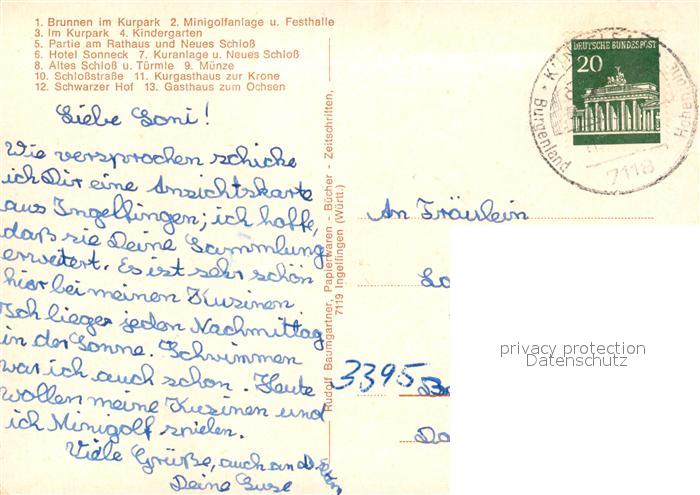 1. Brunnen im Kurpark 2. Minigolfanlage u. Festhalle
3. Im Kurpark 4. Kindergarten
5. Partie am Rathaus und Neues Schloß
6. Hotel Sonneck 7. Kuranlage u. Neues Schloß
8. Altes Schloß u. Türmle 9. Münze
10. Schloßstraße 11. Kurgasthaus zur Krone
12. Schwarzer Hof 13. Gasthaus zum Ochsen
Liebe Soni!
Wie versprochen schicke
ich Dir eine Ansichtskarte
aus Ingelfingen; ich hoffe,
daß sie Deine Sammlung
erweitert. Es ist sehr schön
hier bei meinen Kusinen
Ich liege jeden Nachmittag
in der Sonne. Schwimmen
war ich auch schon. Heute
wollen meine Kusinen und
ich Minigolf spielen.
Viele Grüße, auch an d. Eltern
Deine Suse
Rudolf Baumgartner, Papierwaren - Bücher - Zeitschriften,
7119 Ingelfingen (Württ.)
DEUTSCHE BUNDESPOST
20
Burgenland
7118
An Fräulein
3395
privacy protection
Datenschutz